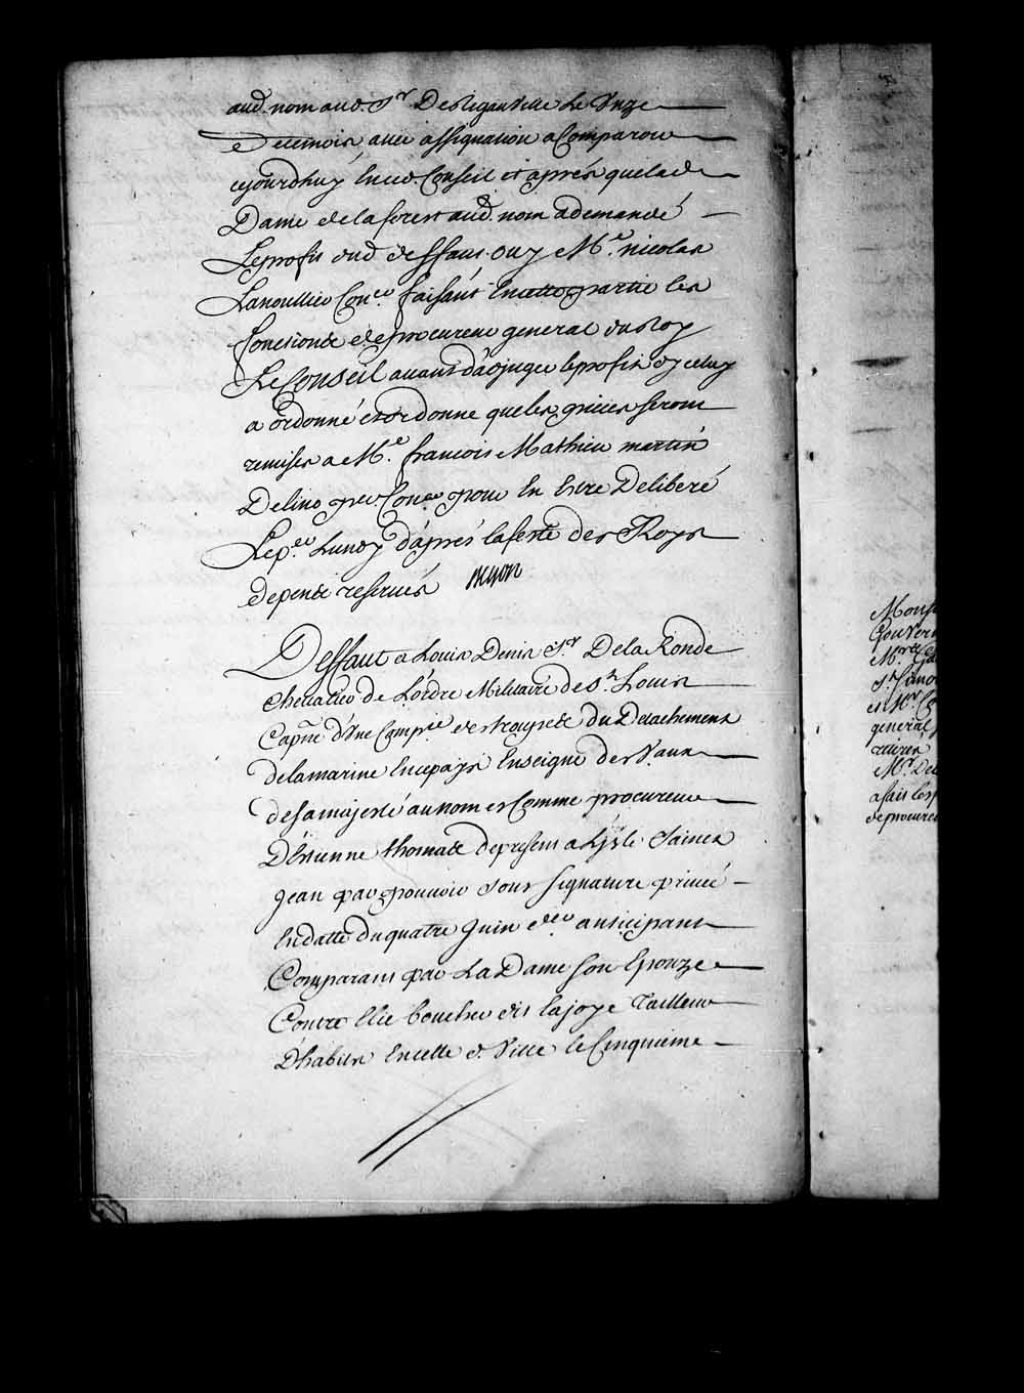 aud. nom aud. Sr. Desleganville le Unze
de ce mois avec assignation a Comparoir
cejourdhuy En ced. Conseil et aprés que lad.
Dame de la forest aud. nom a demandé
Le profit dud deffaut. ouy Me. nicolas
Lanoullier Coner. faisant En cette partie les
fonctions de procureur general du Roy
Le Conseil avant d'adjuger le profit d'yceluy
a ordonné et ordonne que les pieces seront
remises a Me. francois Mathieu martin
Delino prer. Coner pour En Estre Deliberé
Le per. Lundy d'aprés la feste des Roys
depens reservés
Deffaut a Louis Denis Sr. De la Ronde
Chevalier de L'ordre Militaire de St. Louis
Capne d'Une Compie des troupes du Detachement
de la marine En ce pays Enseigne des Vaux
de sa majesté au nom et Comme procureur
D'Estienne thomas de present a L'isle Saint
Jean par pouvoir sous signature privée
En datte du quatre Juin der. anticipant
Comparant par La Dame son Epouze
Contre Elie boucher dit lajoye Tailleur
D'habits En cette d. Ville le Cinquieme
Mons
Gouver
Mr.
St.
et Mr.
general
retirés
Mr. Del
a fait les
de procure